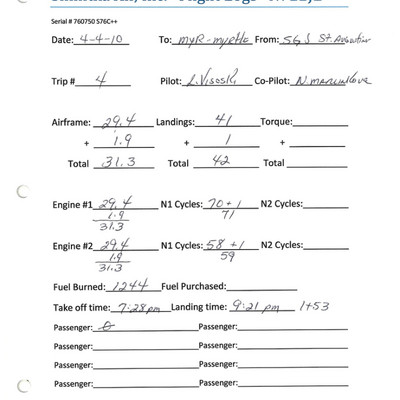 Serial # 760750 S76C++
Date: 4-4-10 To: MYR-Myrtle From: SGJ St. Augustine
Trip # 4 Pilot: L. Visoski Co-Pilot: N. Marcinkova
Airframe: 29.4 Landings: 41 Torque:
+ 1.9 + 1 +
Total 31.3 Total 42 Total
Engine #1 29.4 N1 Cycles: 70 + 1 N2 Cycles:
1.9 71
31.3
Engine #2 29.4 N1 Cycles: 58 + 1 N2 Cycles:
1.9 59
31.3
Fuel Burned: 1244 Fuel Purchased:
Take off time: 7:28 pm Landing time: 9:21 pm 1+53
Passenger: 0 Passenger:
Passenger: Passenger:
Passenger: Passenger:
Passenger: Passenger: